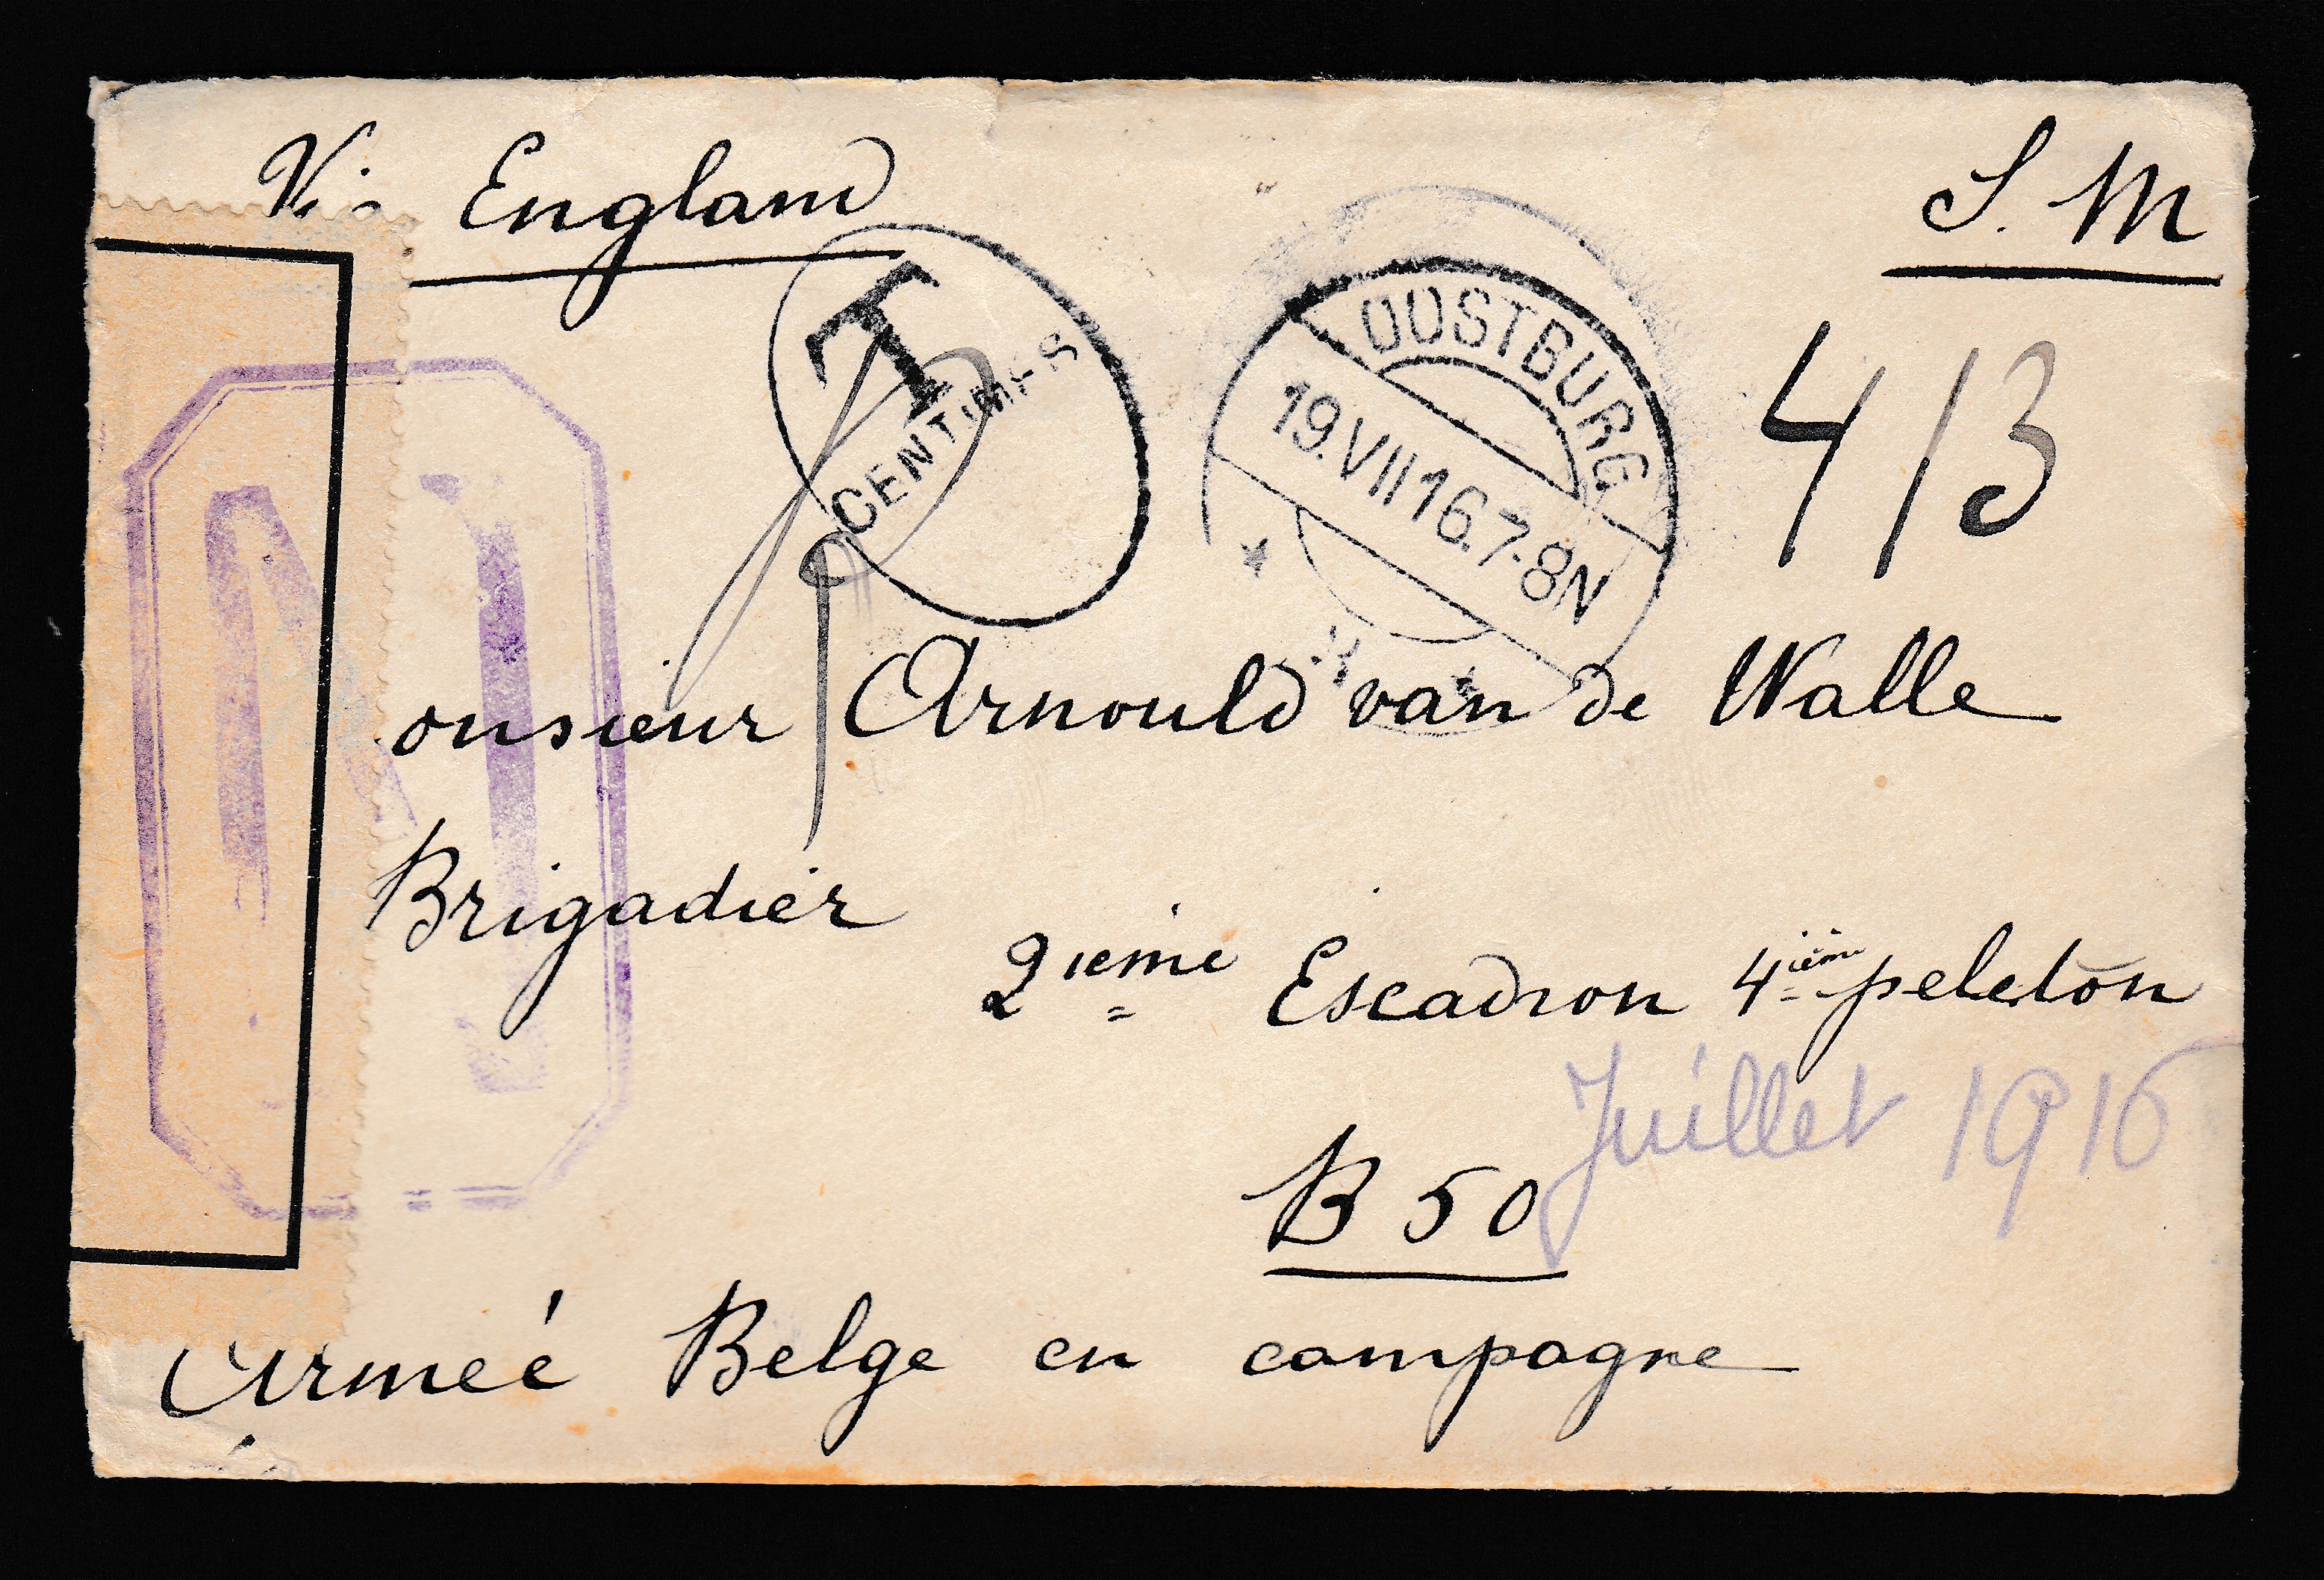 Via England
S. M
T
CENTIMES
OOSTBURG
19.VII16.7-8N
413
onsieur Arnould van de Walle
Brigadier
2ieme Escadron 4ième peleton
Juillet 1916
B 50
Armeé Belge en campagne